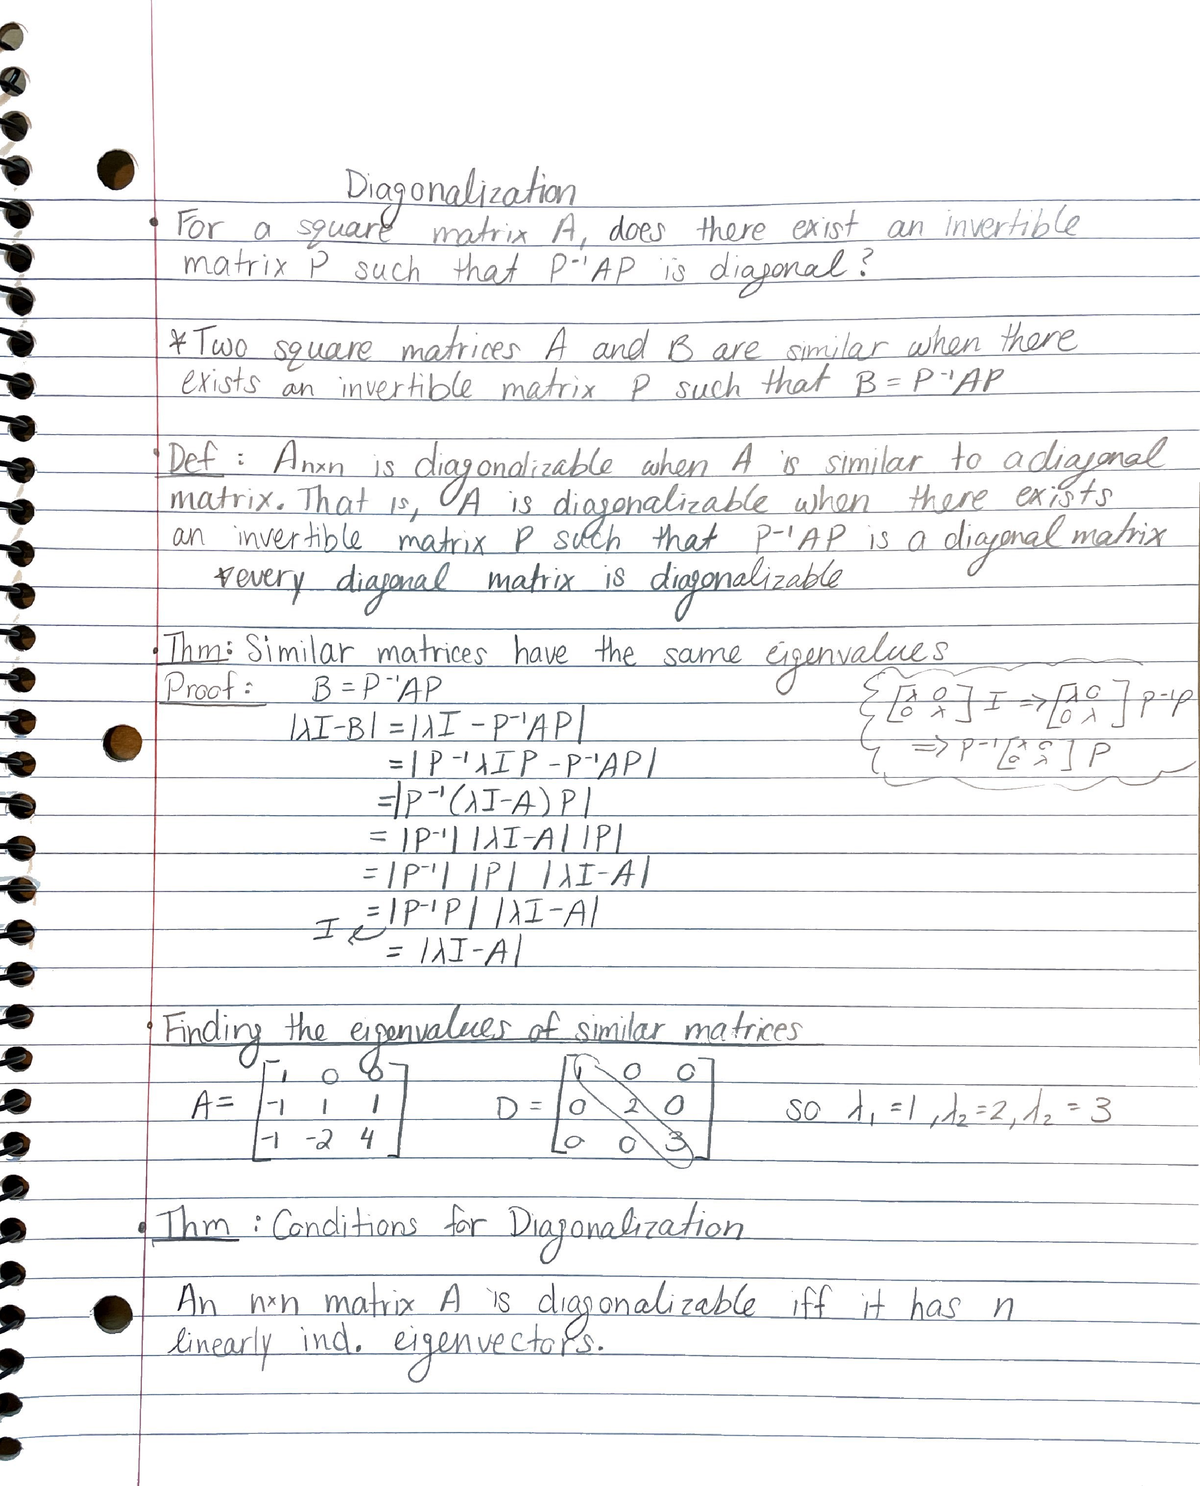 Diagonalization
• For a square matrix A, does there exist an invertible
matrix P such that P⁻¹AP is diagonal?
* Two square matrices A and B are similar when there
exists an invertible matrix P such that B = P⁻¹AP
• Def : Anxn is diagonalizable when A is similar to a diagonal
matrix. That is, A is diagonalizable when there exists
an invertible matrix P such that P⁻¹AP is a diagonal matrix
* every diagonal matrix is diagonalizable
• Thm: Similar matrices have the same eigenvalues
Proof: B = P⁻¹AP
{[λ 0 0 λ] I ⇒ [λ 0 0 λ] P⁻¹P
⇒ P⁻¹[λ 0 0 λ] P
|λI-B| = |λI - P⁻¹AP|
= |P⁻¹λIP - P⁻¹AP|
= |P⁻¹(λI-A)P|
= |P⁻¹| |λI-A| |P|
= |P⁻¹| |P| |λI-A|
I = |P⁻¹P| |λI-A|
= |λI-A|
• Finding the eigenvalues of similar matrices
A = [1 0 0 -1 1 1 -1 -2 4] D = [1 0 0 0 2 0 0 0 3] so λ₁ = 1, λ₂ = 2, λ₂ = 3
• Thm : Conditions for Diagonalization
An n×n matrix A is diagonalizable iff it has n
linearly ind. eigenvectors.